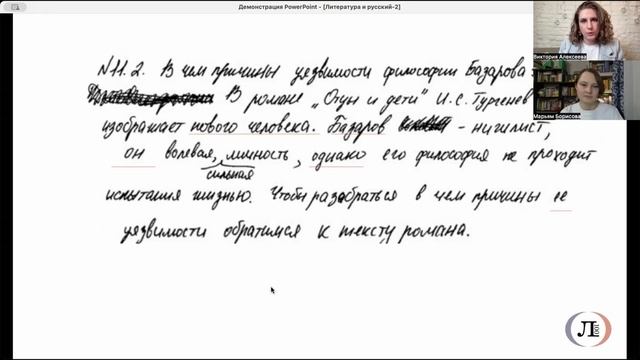 Демонстрация PowerPoint - [Литература и русский-2]
Виктория Алексеева
Марьям Борисова
N11.2. В чем причины уязвимости философии Базарова.
В романе „Отцы и дети" И.С. Тургенев
изображает нового человека. Базаров - нигилист,
он волевая, личность, однако его философия не проходит
сильная
испытания жизнью. Чтобы разобраться в чем причины ее
уязвимости обратимся к тексту романа.
Л